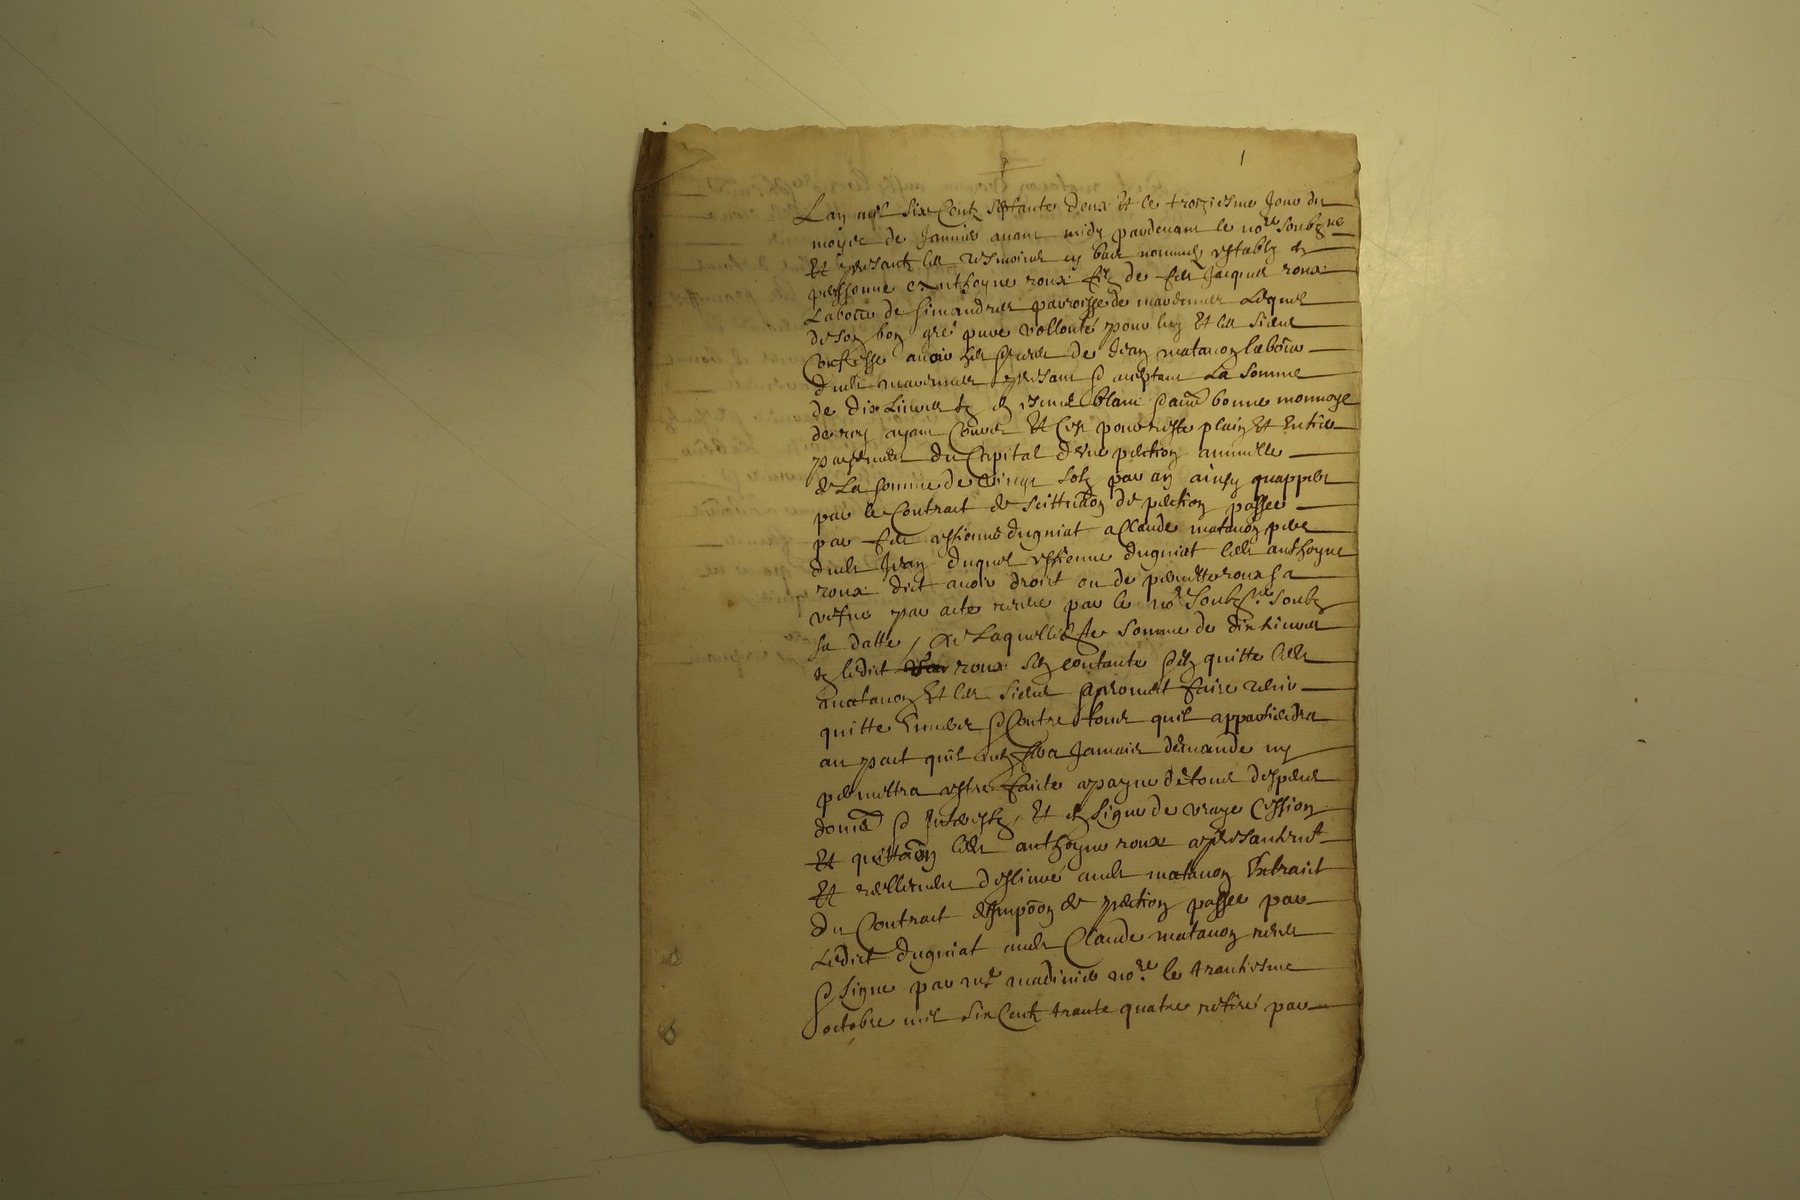 1
Lan mil six Centz septante deux Et le troiziesme Jour du
moys de Janvier avant midy pardevant le no.re soubzne
Et presantz les tesmoins cy bas nommes estably en
personne anthoyne roux filz de feu Jacques roux
Labour de simandres parroisse de Lequel
de son bon gré pure vollonté pour luy Et les siens
Confesse avoir heu de Jean matanon labour
dudit presant acceptant La somme
de dix Livres tz en blanc bonne monnoye
de roy ayant Cours Et Cest pour reste plain Et Entier
payement du Capital dune pention annuelle
de La somme de vingt solz par an ainsy quappert
par le Contract de pention passee
par feu estienne dugniat a Claude matanon pere
dudit Jean duquel estienne dugniat ledit anthoyne
roux dict avoir droict ou de pernette roux sa
vefve par acte receu par le no.re soubz.ne soubz
sa datte / De Laquelle somme de dix Livres
tz ledict roux sen contante quitte ledit
matanon Et les siens promet faire tenir
quitte Envers Contre tous quil appartiendra
au pact quil nen fera Jamais demande ny
permettra estre faicte a payne de tous despens
Et en signe de vraye Cession
Et quittance ledit anthoyne roux a presantement
Et reellement deslivré audit matanon Extraict
du Contract de pention passee par
Ledict dugniat audit Claude matanon receu
signe par m.e no.re le trantiesme
octobre mil six Centz trante quatre retiré par